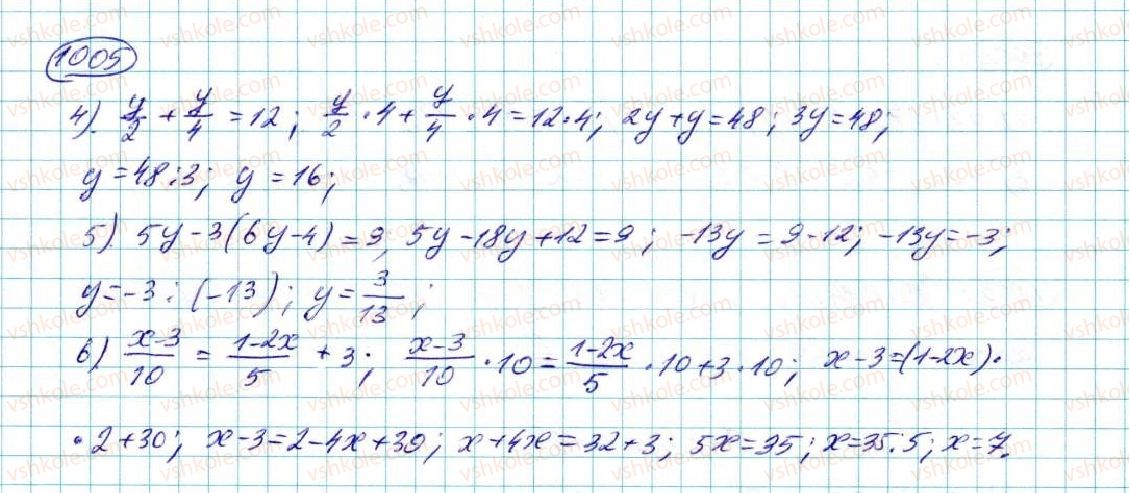 1005
4). y/2 + y/4 = 12; y/2 · 4 + y/4 · 4 = 12·4; 2y+y=48; 3y=48;
y=48:3; y=16;
5). 5y-3(6y-4)=9, 5y-18y+12=9; -13y=9-12; -13y=-3;
y=-3:(-13); y=3/13;
6) x-3/10 = 1-2x/5 + 3; x-3/10 · 10 = 1-2x/5 · 10+3·10; x-3=(1-2x)·
·2+30; x-3=2-4x+30; x+4x=32+3; 5x=35; x=35:5; x=7.
vshkole.com